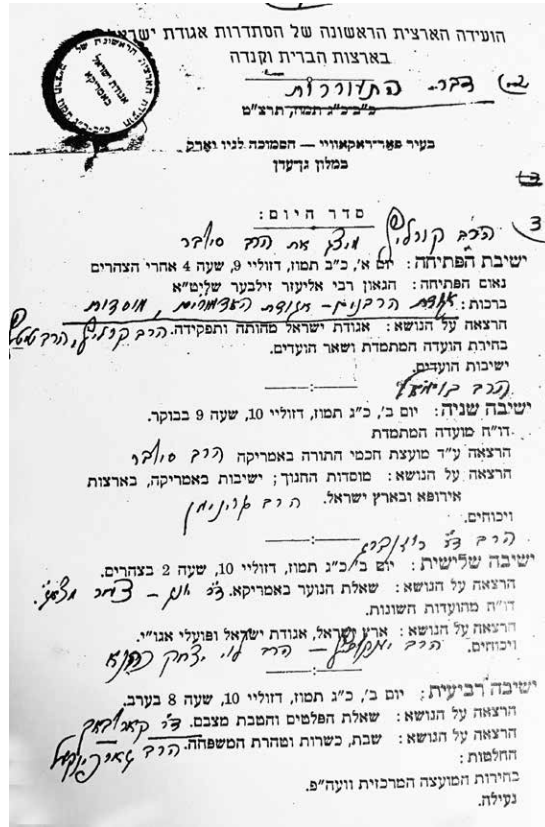 הועידה הארצית הראשונה של הסתדרות אגודת ישראל
בארצות הברית וקנדה
דבר התעוררות
כ״ב־כ״ג תמוז, תרצ״ט
בעיר פאר־ראקאוויי — הסמוכה לניו יארק
במלון גן־עדן
סדר היום:
3
הרב קורליץ מציג את הרב סילבר
ישיבת הפתיחה: יום א׳, כ״ב תמוז, דזוליי 9, שעה 4 אחרי הצהרים
נאום הפתיחה: הגאון רבי אליעזר זילבער שליט״א
ברכות: אגודת הרבנים – אגודת האדמורים, מוסדות
הרצאה על הנושא: אגודת ישראל מהותה ותפקידה. הרב קרליץ, הרב
בחירת הועדה המתמדת ושאר הועדים.
ישיבות הועדים.
הרב
ישיבה שניה: יום ב׳, כ״ג תמוז, דזוליי 10, שעה 9 בבוקר.
דו״ח מועדה המתמדת
הרצאה ע״ד מועצת חכמי התורה באמריקה הרב סילבר
הרצאה על הנושא: מוסדות החנוך; ישיבות באמריקה, בארצות
אירופא ובארץ ישראל. הרב גרינימן
ויכוחים.
הרב ד״ר רוזנברג
ישיבה שלישית: יום ב׳ כ״ג תמוז, דזוליי 10, שעה 2 בצהרים.
הרצאה על הנושא: שאלת הנוער באמריקא. ד״ר
דו״ח מהועדות השונות.
הרצאה על הנושא: ארץ ישראל, אגודת ישראל ופועלי אגו״י.
ויכוחים. הרב – הרב לוי יצחק כהנא
ישיבה רביעית; יום ב׳, כ״ג תמוז, דזוליי 10, שעה 8 בערב.
הרצאה על הנושא: שאלת הפלטים והטבת מצבם. ד״ר
הרצאה על הנושא: שבת, כשרות וטהרת המשפחה. הרב
החלטות:
בחירות המועצה המרכזית וועה״פ.
נעילה.